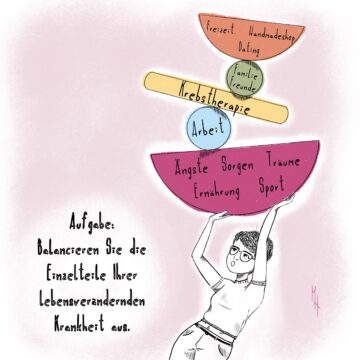 Freizeit Handmadeshop
Dating
Familie
Freunde
Krebstherapie
Arbeit
Ängste Sorgen Träume
Ernährung Sport
Aufgabe:
Balancieren Sie die
Einzelteile Ihrer
lebensverändernden
Krankheit aus.